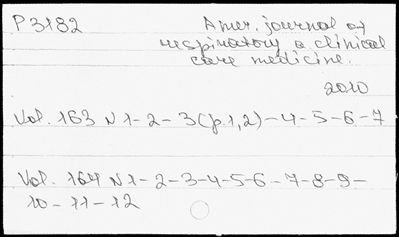 P3182 Amer. journal of
respiratory a clinical
care medicine.
2010
Vol. 163 N 1-2-3(p.1,2)-4-5-6-7
Vol. 164 N 1-2-3-4-5-6-7-8-9-
10-11-12